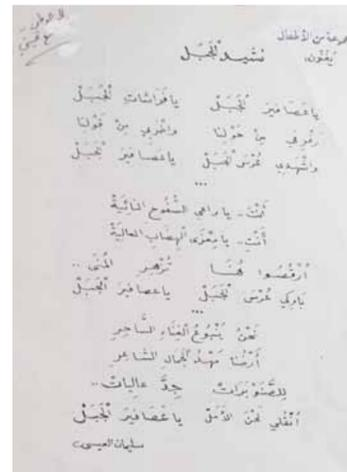 مجموعة من الأطفال
يغنون:
نشيد الجبل
يا عصافيرَ الجَبَلْ يا فراشاتِ الجَبَلْ
من حَوْلنا وامْرَحي مِنْ حَوْلنا
واشْهدي عُرْسَ الجَبَلْ يا عصافيرَ الجَبَلْ
...
أنْتَ.. يا راعي السُّفوحِ النائيةْ
أنْتِ.. يا مِعْزَى الهِضابِ العاليةْ
اُرْقُصُوا هُنا تُزْهِرِ المُنَى..
بَارِكي عُرْسَ الجَبَلْ يا عصافيرَ الجَبَلْ
...
نَحْنُ يَنْبُوعُ الغِناءِ السَّاحِرِ
أرْضُنا مَهْدُ الجمالِ الشاعرِ
لِلصَّنَوْبَراتْ جِدُّ عالياتْ..
اُنْقُلي لَحْنَ الأَمَلْ يا عَصَافيرَ الجَبَلْ
سليمان العيسى